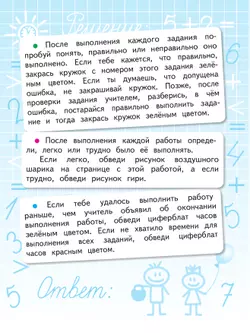 Решение
5+2=
После выполнения каждого задания по-
пробуй понять, правильно или неправильно оно
выполнено. Если тебе кажется, что правильно,
закрась кружок с номером этого задания зелё-
ным цветом. Если ты думаешь, что допущена
ошибка, не закрашивай кружок. Позже, после
проверки задания учителем, разберись, в чём
ошибка, постарайся правильно выполнить зада-
ние и тогда закрась кружок зелёным цветом.
После выполнения каждой работы опреде-
ли, легко или трудно было её выполнять.
Если легко, обведи рисунок воздушного
шарика на странице с этой работой, а если
трудно, обведи рисунок гири.
Если тебе удалось выполнить работу
раньше, чем учитель объявил об окончании
выполнения работы, обведи циферблат часов
зелёным цветом. Если не хватило времени для
выполнения всех заданий, обведи циферблат
часов красным цветом.
Ответ:
7